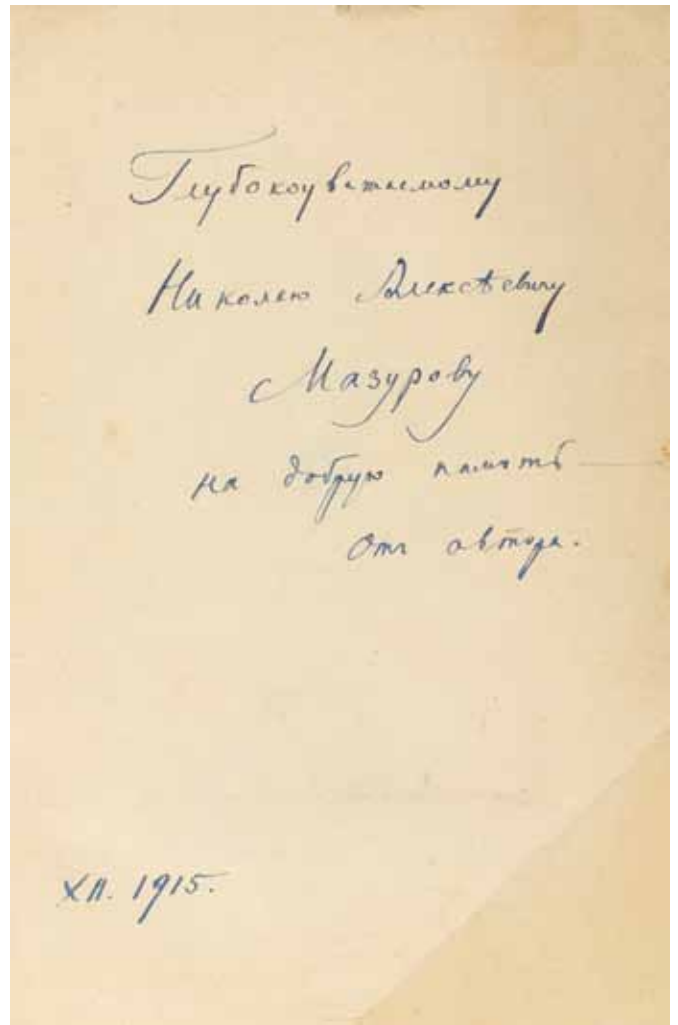 Глубокоуважаемому
Николаю Алексѣевичу
Мазурову
на добрую память
Отъ автора.
XII. 1915.